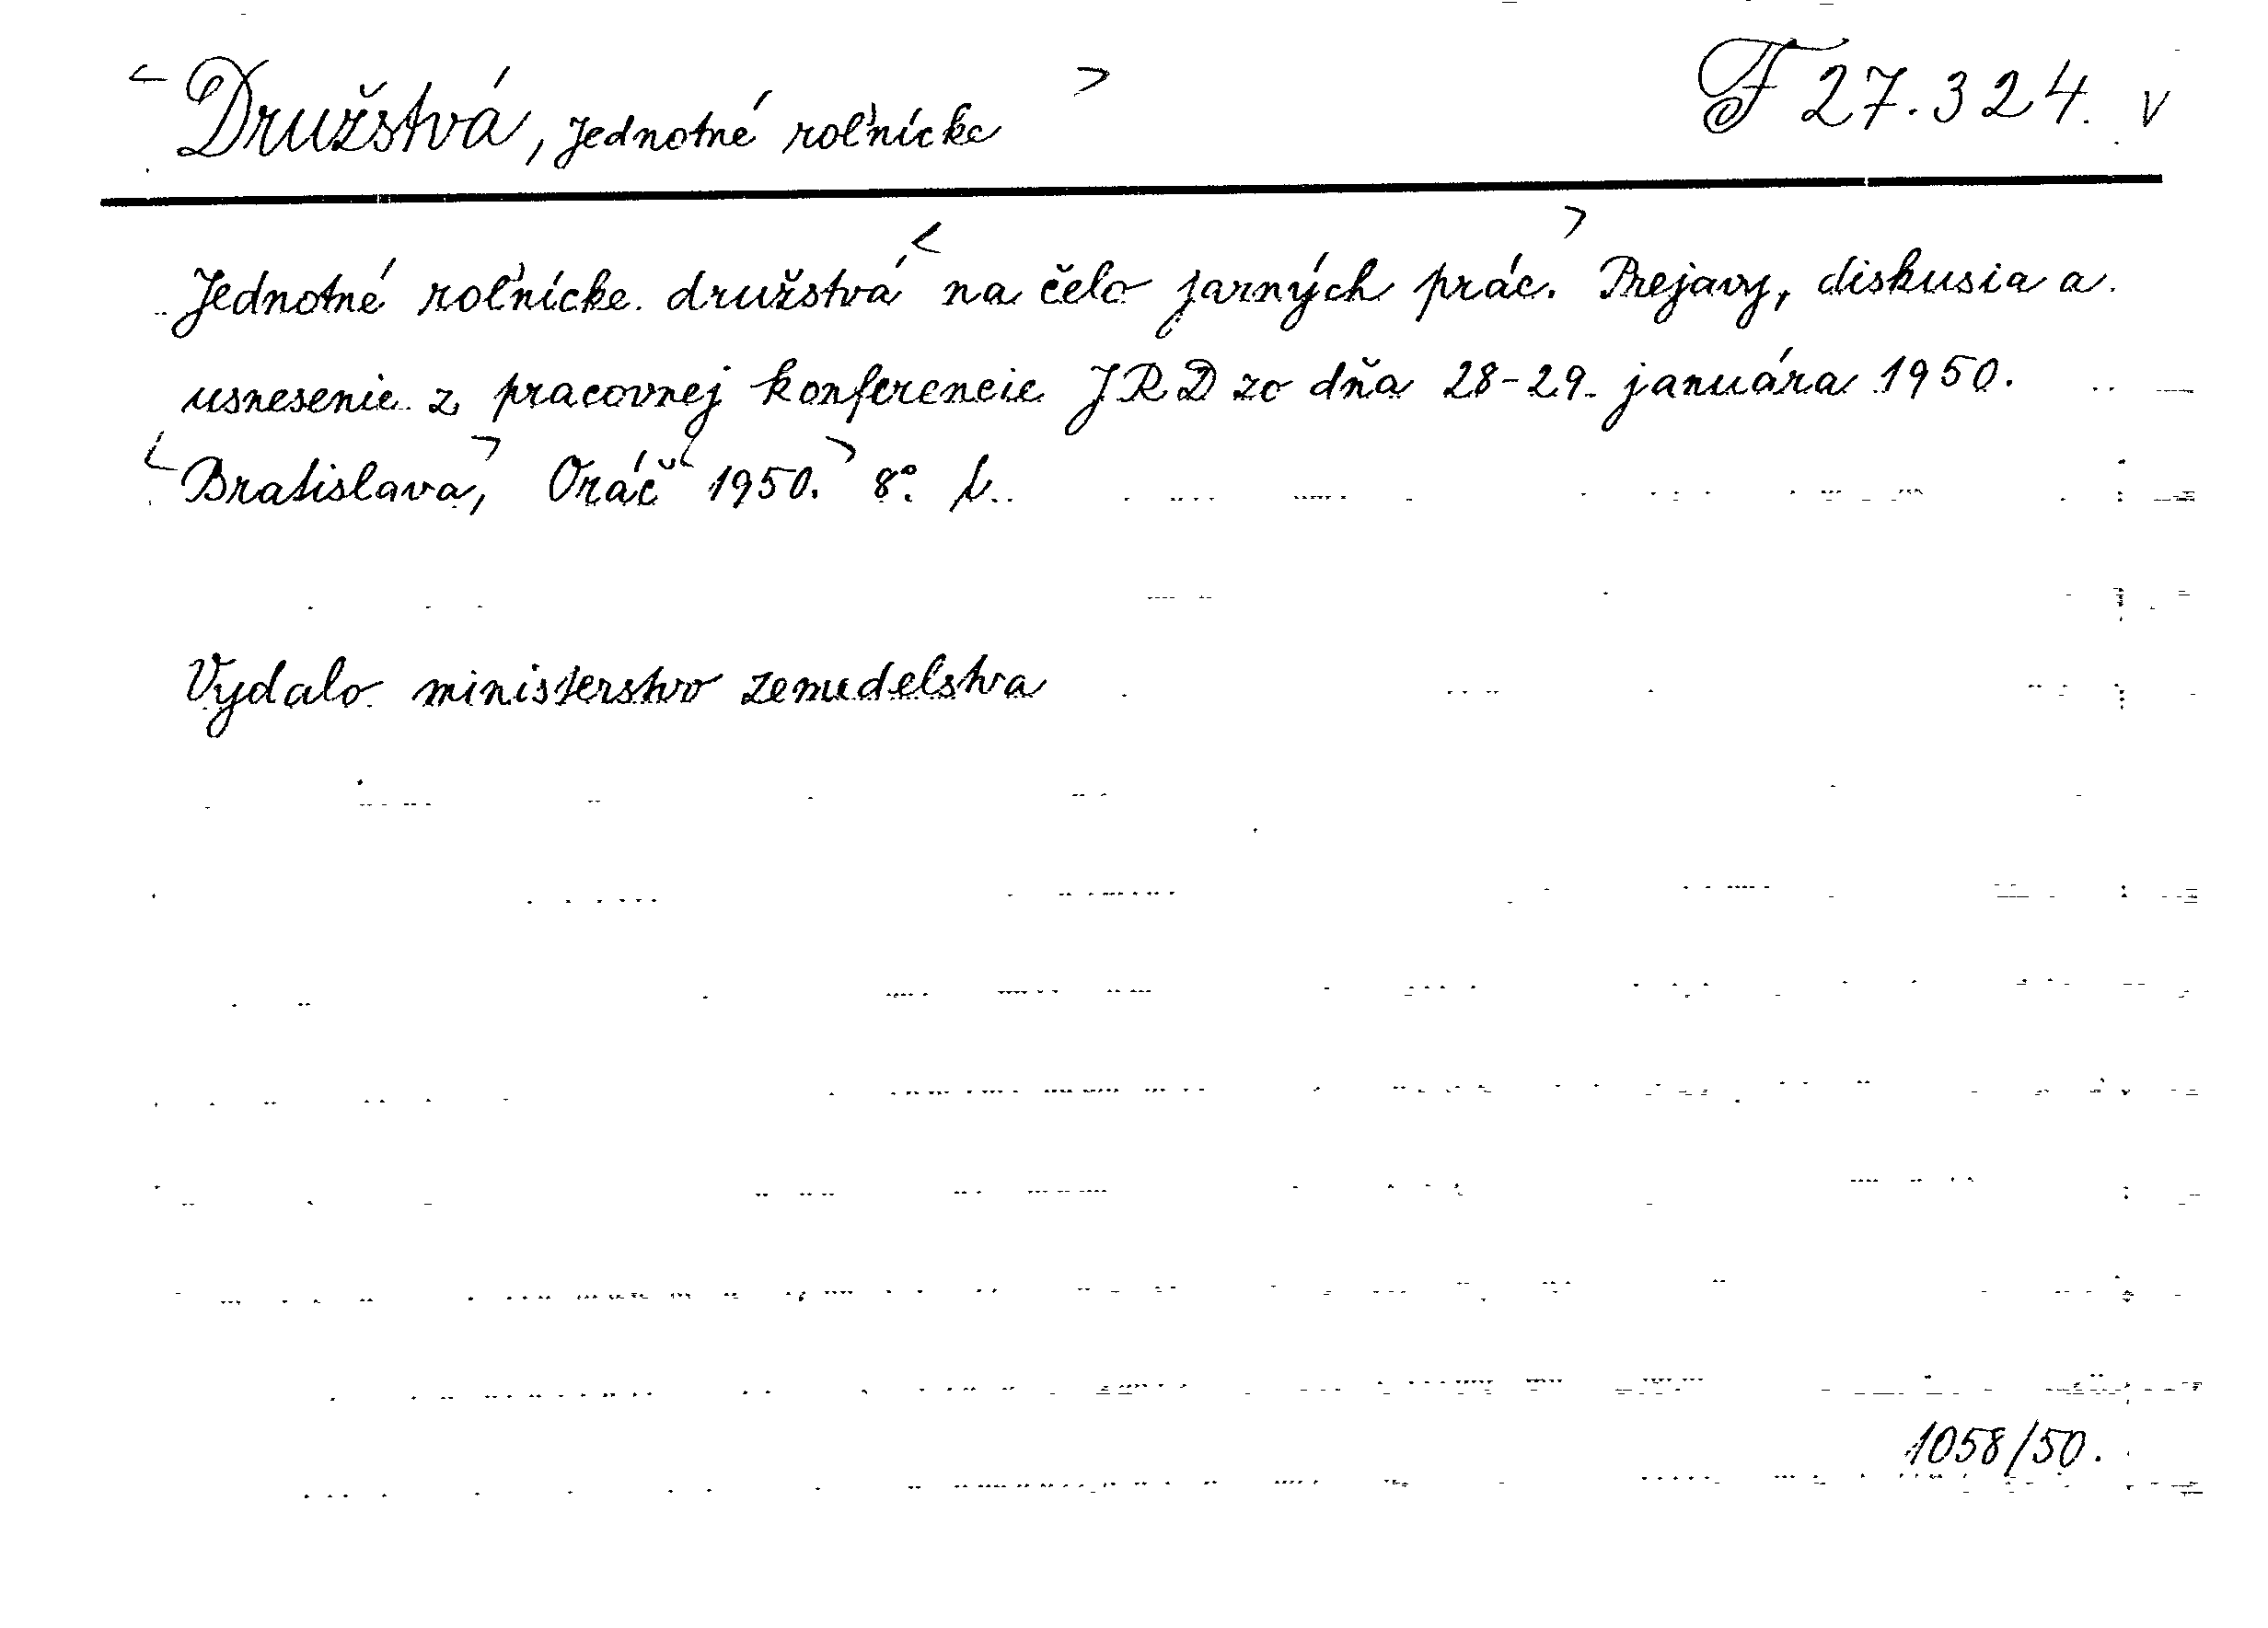 <Družstvá, Jednotné roľnícke> F 27.324. V
Jednotné roľnícke družstvá <na čelo jarných prác.> Prejavy, diskusia a
usnesenie z pracovnej konferencie JRD zo dňa 28-29. januára 1950.
<Bratislava,> Oráč <1950.> 8°.
Vydalo ministerstvo zemedelstva
1058/50.